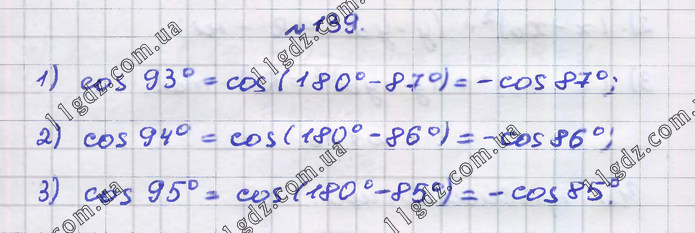 №139.
1) cos 93° = cos(180°-87°) = -cos 87°;
2) cos 94° = cos(180°-86°) = -cos 86°;
3) cos 95° = cos(180°-85°) = -cos 85°.
11gdz.com.ua 11gdz.com.ua 11gdz.com.ua 11gdz.com.ua